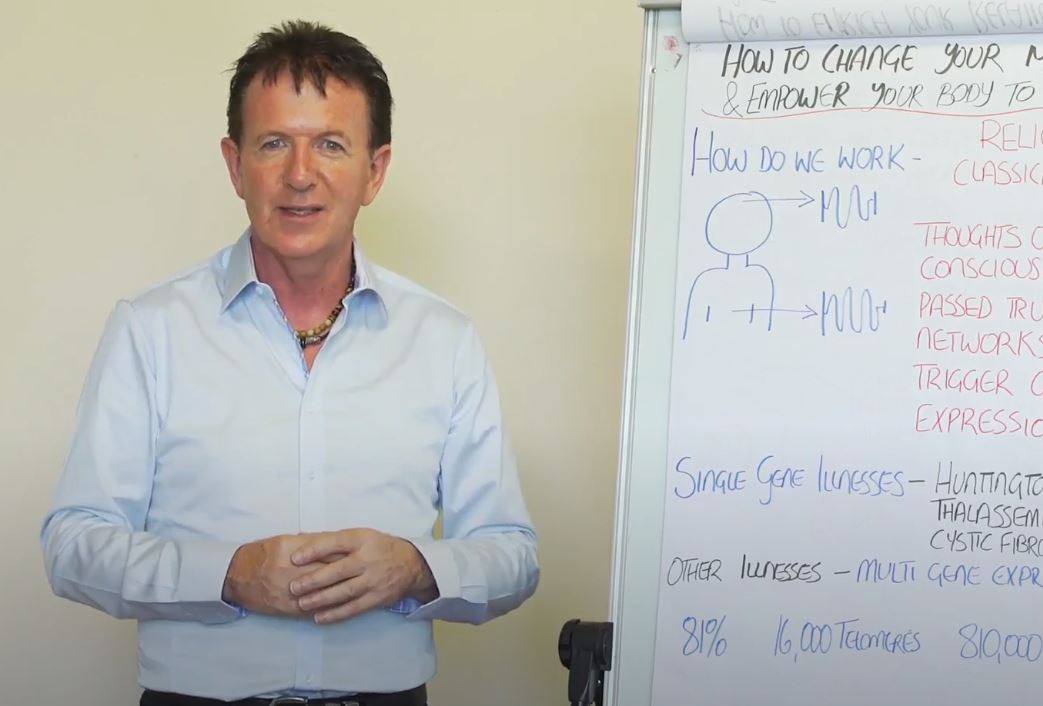 HOW TO ENRICH YOUR
HOW TO CHANGE YOUR
& EMPOWER YOUR BODY TO
HOW DO WE WORK -
RELIG
CLASSICA
THOUGHTS O
CONSCIOUS
PASSED TRU
NETWORKS
TRIGGER
EXPRESSIO
SINGLE GENE ILLNESSES - HUNTINGTO
THALASSEM
CYSTIC FIBRO
OTHER ILLNESSES - MULTI GENE EXPR
81% 16,000 TELOMERES 810,000